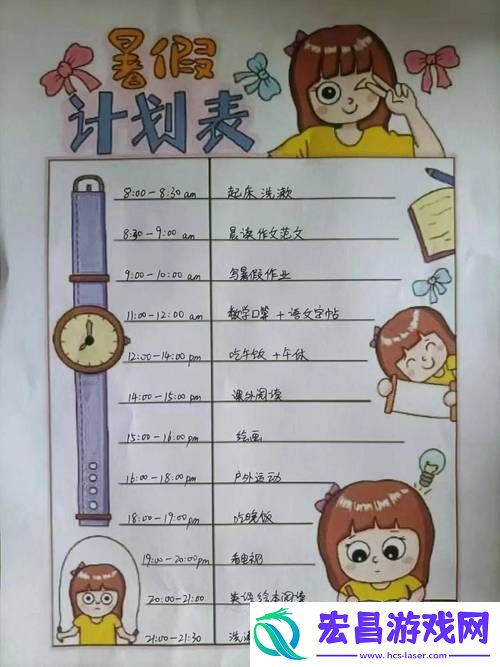 暑假
计划表
8:00-8:30 am 起床 洗漱
8:30-9:00 am 晨读 作文范文
9:00-10:00 am 写暑假作业
11:00-12:00 am 数学口算 + 语文字帖
12:00-14:00 pm 吃午饭 + 午休
14:00-15:00 pm 课外阅读
15:00-16:00 pm 绘画
16:00-18:00 pm 户外运动
18:00-19:00 pm 吃晚饭
19:00-20:00 pm 看电视
20:00-21:00 英语绘本阅读
21:00-21:30 洗
宏昌游戏网
www.hcs-laser.com